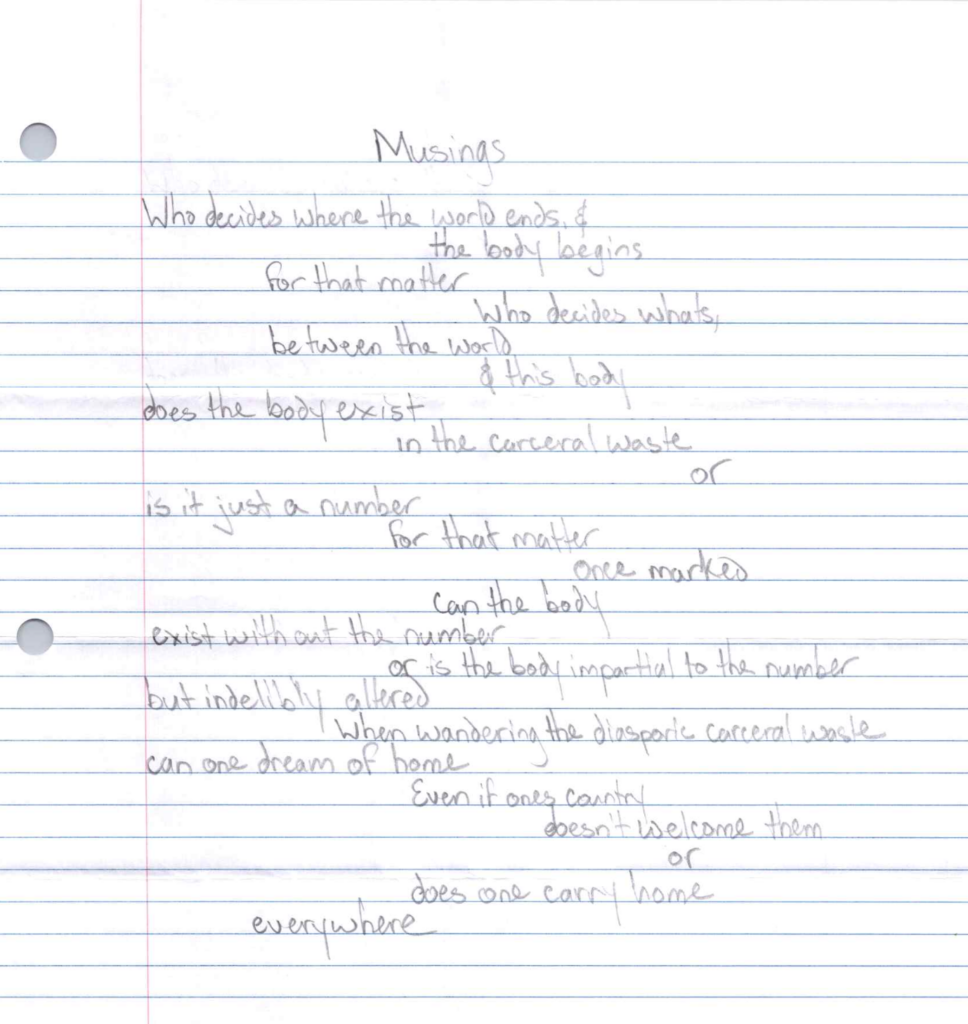 Musings
Who decides where the world ends, &
the body begins
for that matter
Who decides whats,
between the world
& this body
does the body exist
in the carceral waste
or
is it just a number
for that matter
once marked
can the body
exist with out the number
or is the body impartial to the number
but indelibly altered
When wandering the diasporic carceral waste
can one dream of home
Even if ones country
doesn't welcome them
or
does one carry home
everywhere